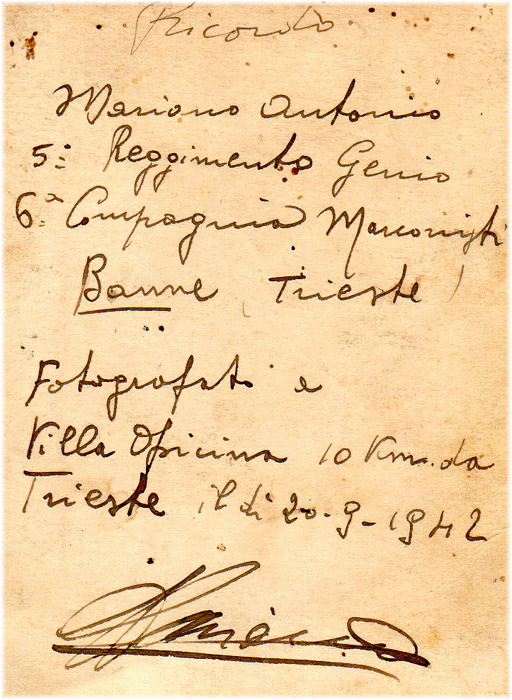 Ricordo
Mariano Antonio
5º Reggimento Genio
6ª Compagnia Marconisti
Banne (Trieste)
Fotografati a
Villa Opicina 10 Km. da
Trieste il dì 20-9-1942